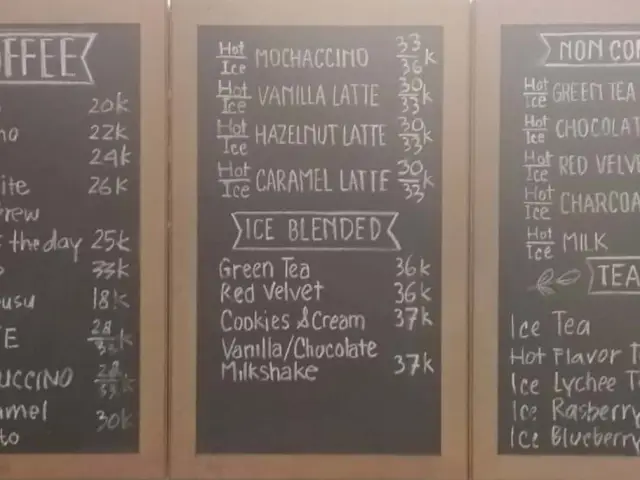 OFFEE
20k
22k
24k
ite 26k
rew
the day 25k
33k
usu 18k
E 28/33k
UCCINO 28/33k
amel
to 30k
Hot/Ice MOCHACCINO 33/36k
Hot/Ice VANILLA LATTE 30/33k
Hot/Ice HAZELNUT LATTE 30/33k
Hot/Ice CARAMEL LATTE 30/33k
ICE BLENDED
Green Tea 36k
Red Velvet 36k
Cookies & Cream 37k
Vanilla/Chocolate
Milkshake 37k
NON CO
Hot/Ice GREEN TEA
Hot/Ice CHOCOLAT
Hot/Ice RED VELVE
Hot/Ice CHARCOA
Hot/Ice MILK
TEA
Ice Tea
Hot Flavor T
Ice Lychee T
Ice Rasberry
Ice Blueberry